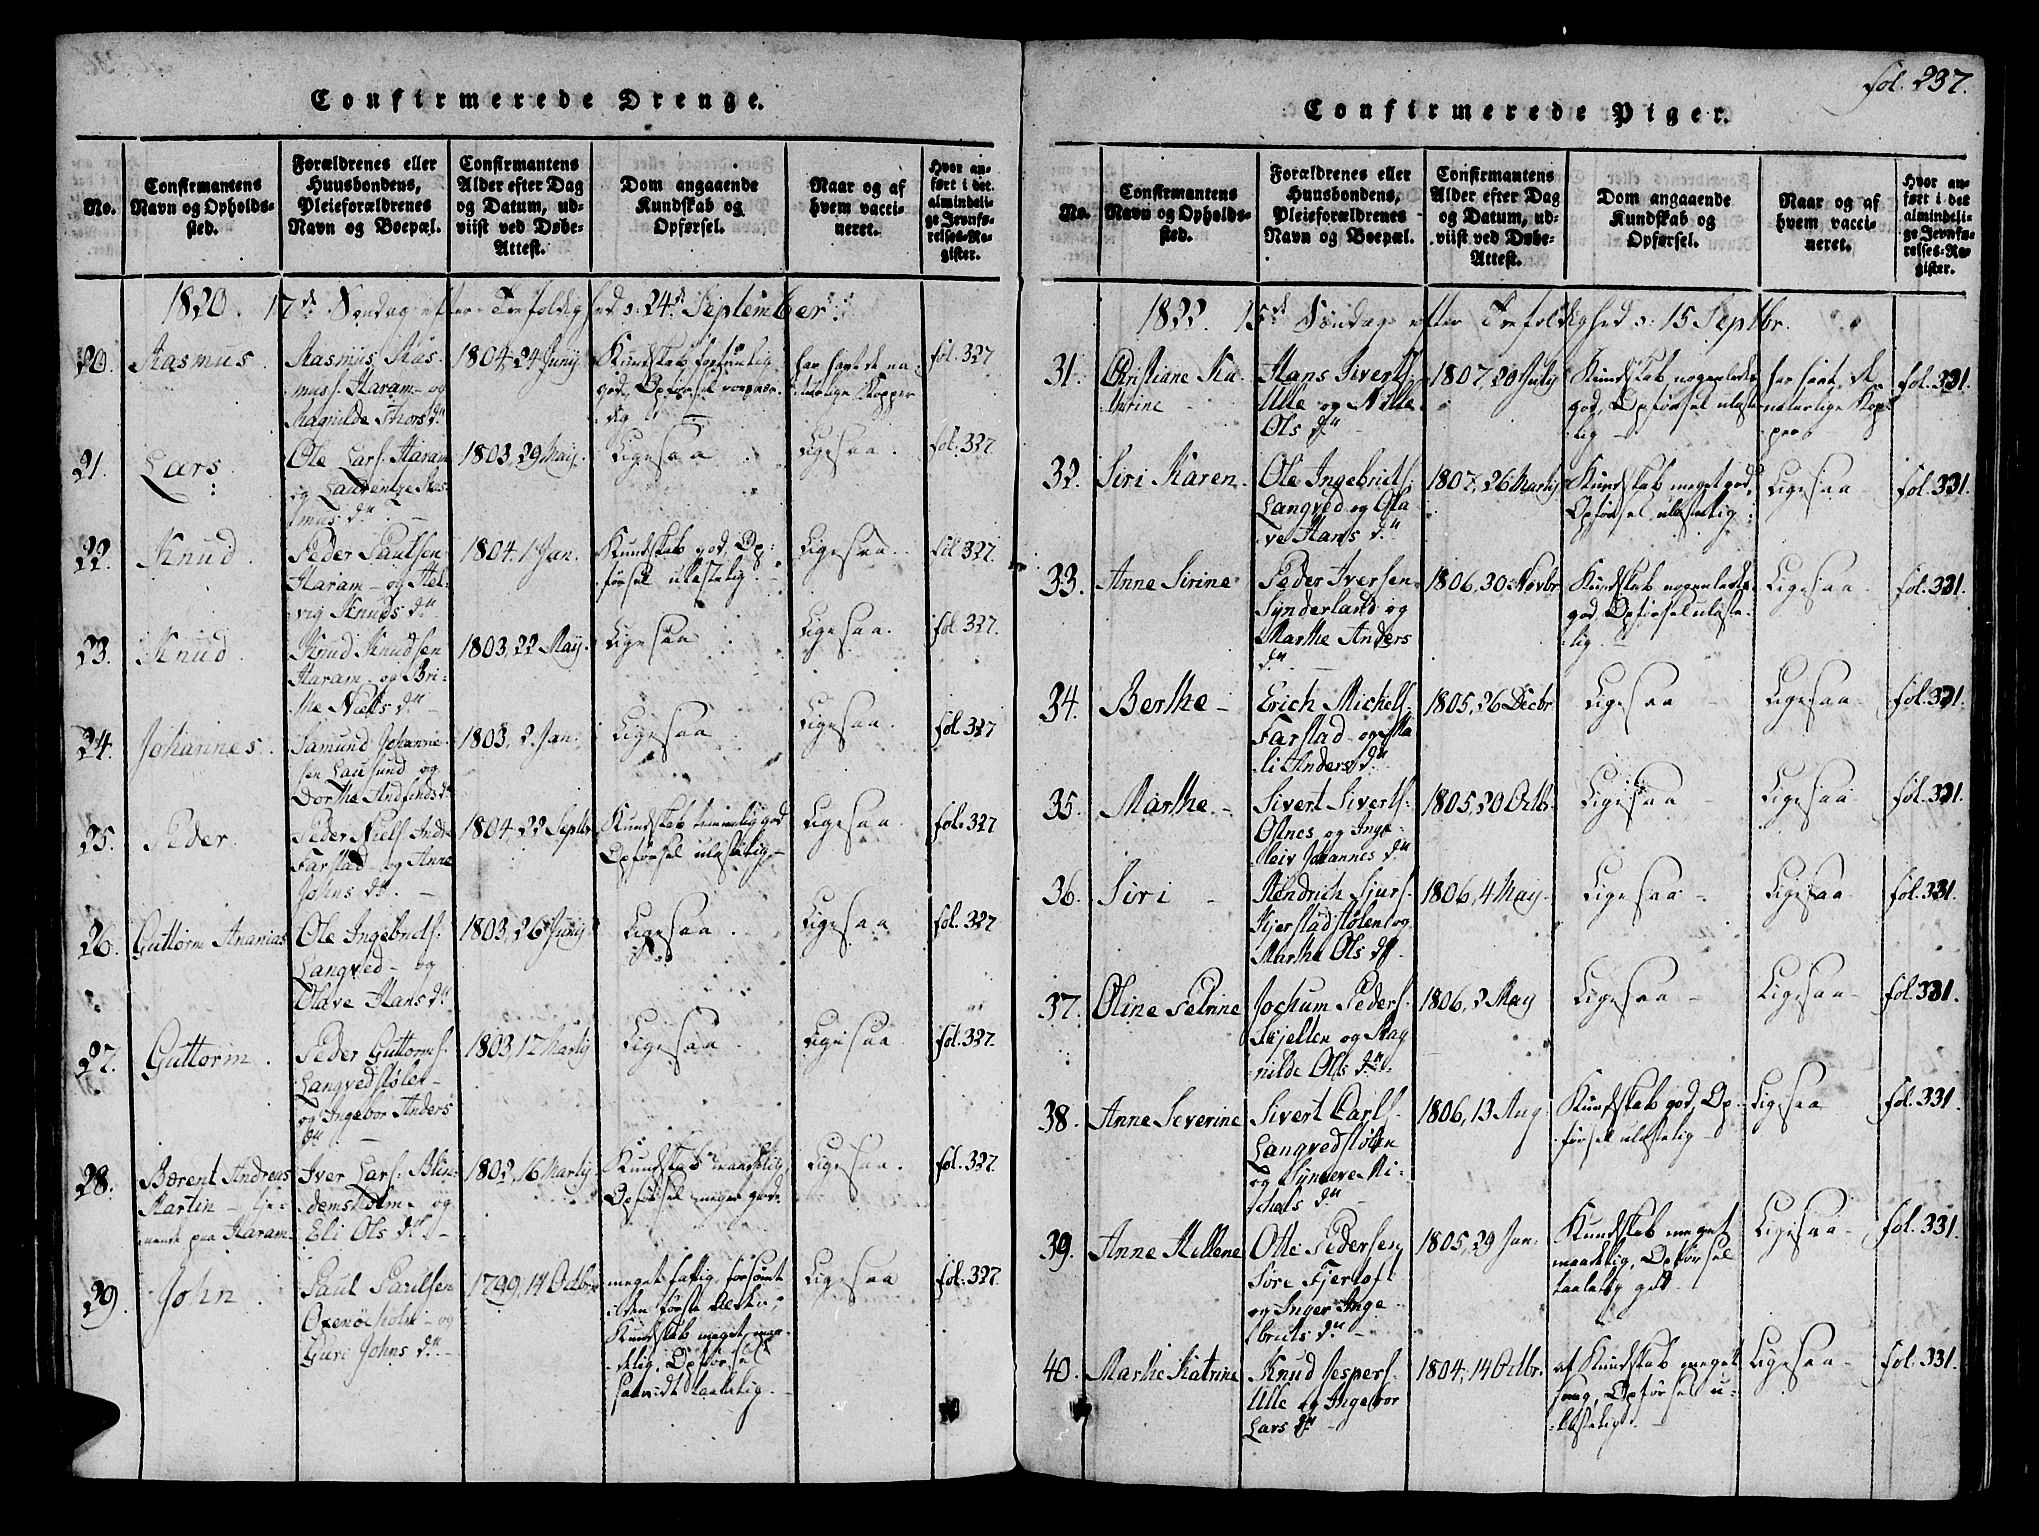 Confirmerede Drenge.
No.
Confirmantens
Navn og Opholds-
sted.
Forældrenes eller
Huusbondens,
Pleieforældrenes
Navn og Boepæl.
Confirmantens
Alder efter Dag
og Datum, ud-
viist ved Døbe-
Attest.
Dom angaaende
Kundskab og
Opførsel.
Naar og af
hvem vacci-
neret.
Hvor an-
ført i det
almindeli-
ge Jevnfø-
relses-Re-
gister.
1820. 17de Søndag efter Trefoldighed d: 24de September
20. Rasmus
Rasmus Ras
mus s. Haram og
Magnilde Thors dr
1804, 24 Juny
Kundskab
god, Opførsel
har havt de na
turlige Kopper
fol. 327
21. Lars
Ole Lars. Haram
og Laurentze Ras
mus dr
1803, 29 May.
Ligesaa
Ligesaa
fol. 327
22. Knud
Peder Paulsen
Haram og Hel
vig Knuds dr
1804. 1 Jan.
Kundskab god, Op:
førsel ulastelig.
Ligesaa.
fol. 327
23. Knud
Knud Knudsen
Haram og Bri
the Niels dr
1803, 22 May.
Ligesaa
Ligesaa.
fol. 327.
24. Johannes
Samund Johanne
sen Lausund og
Dorthe Andfinds dr
1803, 2 Jan.
Ligesaa
Ligesaa.
fol. 327
25. Peder
Peder Niels
Farstad og Anne
Johns dr.
1804, 22 Septbr
Kundskab temmelig god
Opførsel ulastelig
Ligesaa
fol. 327
26. Guttorm Ananias
Ole Ingebrits.
Langved og
Olave Hans dr
1803, 26 Juny
Ligesaa
Ligesaa
fol. 327
27. Guttorm
Peder Guttorms.
Langvedstølen
og Ingebor Anders
dr
1803, 17 Martij
Ligesaa
Ligesaa
fol. 327.
28. Bærent Andreas
Martin tje-
nende paa Haram
Iver Lars. Blin
demsholm og
Eli Ols dr
1802, 16 Martij
Kundskab maadelig,
Opførsel meget god.
Ligesaa.
fol. 327
29. John
Paul Paulsen
Oxenöeholm og
Guri Johns dr
1799, 14 Octbr
meget fattig, forsömt
i den første Alder,
Kundskab meget maa
delig, Opførsel
saavidt taalelig.
Ligesaa
fol. 327
fol. 237.
Confirmerede Piger.
No.
Confirmantens
Navn og Opholds-
sted.
Forældrenes eller
Huusbondens,
Pleieforældrenes
Navn og Boepæl.
Confirmantens
Alder efter Dag
og Datum, ud-
viist ved Døbe-
Attest.
Dom angaaende
Kundskab og
Opførsel.
Naar og af
hvem vacci-
neret.
Hvor an-
ført i det
almindeli-
ge Jevnfø-
relses-Re-
gister.
1822. 15de Søndag efter Trefoldighed d: 15 Septbr.
31. Christiane Ka
thrine
Hans Siverts
Ulle og Nille
Ols dr
1807, 20 July
Kundskab nogenledes
god, Opførsel ulaste
lig
har havt de
naturlige Kop
per
fol. 331.
32. Siri Karen
Ole Ingebrits.
Langved og Ola
ve Hans dr
1807, 26 Martij
Kundskab meget god,
Opførsel ulastelig
Ligesaa
fol. 331.
33. Anne Sirine
Peder Iversen
Synderland og
Marthe Anders
dr
1806, 30 Novbr
Kundskab nogenledes
god, Opførsel ulaste
lig
Ligesaa
fol. 331.
34. Berthe
Erich Michels.
Farstad og Ma
li Anders dr
1805, 26 Decbr
Ligesaa
Ligesaa
fol. 331.
35. Marthe
Sivert Siverts.
Ostnes og Inge
leiv Johannes dr
1805, 20 Octb:
Ligesaa
Ligesaa
fol. 331.
36. Siri
Hendrich Sjurs.
Kjerstadstølen og
Marthe Ols dr
1806, 4 May.
Ligesaa
Ligesaa
fol. 331.
37. Oline Petrine
Jochum Peders.
Skjelten og Rag
nilde Ols dr
1806, 2 May
Ligesaa
Ligesaa
fol. 331.
38. Anne Severine
Sivert Carls.
Langvedstølen
og Synneve Mi
chels dr
1806, 13 Aug
Kundskab god, Op
førsel ulastelig
Ligesaa
fol. 331.
39. Anne Hellene
Olle Pedersen
Søre Fjertoft
og Inger Inge
brits dr
1805, 29 Jan.
Kundskab meget
maadelig, Opførsel
taalelig god
Ligesaa
fol. 331.
40. Marthe Katrine
Knud Jespers.
Ulle og Ingebor
Lars dr
1804, 14 Octbr.
af Kundskab meget
svag, Opførsel u-
lastelig.
Ligesaa
fol. 331.